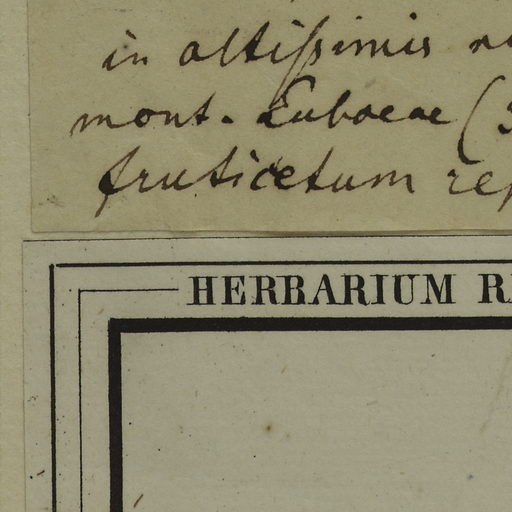 in altissimis
mont. Euboeae (3
fruticetum rep
HERBARIUM R